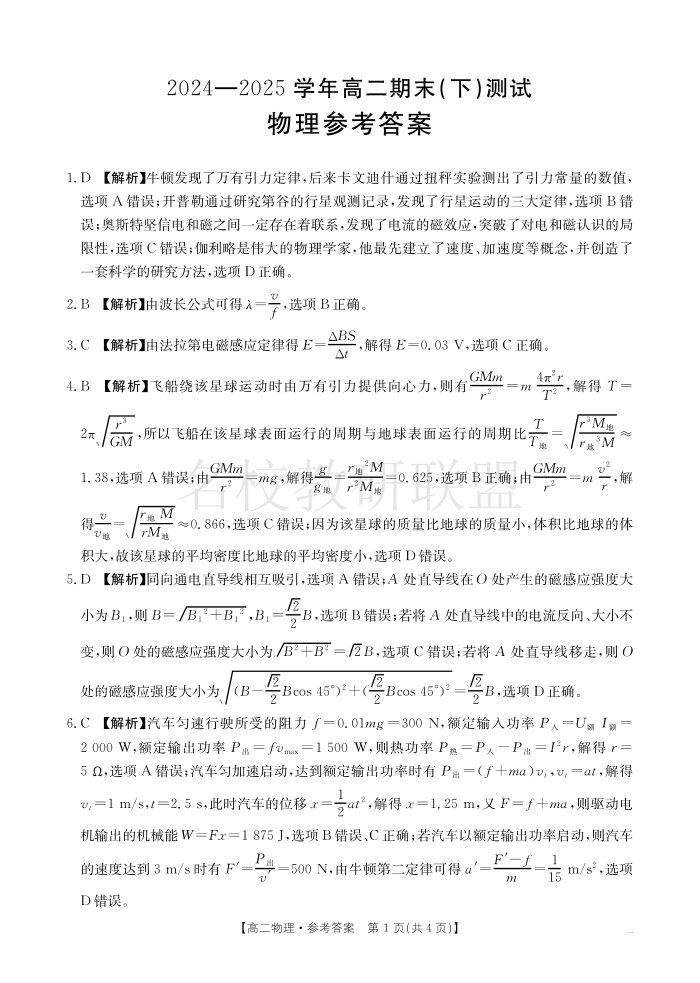 2024—2025 学年高二期末(下)测试
物理参考答案
1. D 【解析】牛顿发现了万有引力定律,后来卡文迪什通过扭秤实验测出了引力常量的数值,
选项 A 错误;开普勒通过研究第谷的行星观测记录,发现了行星运动的三大定律,选项 B 错
误;奥斯特坚信电和磁之间一定存在着联系,发现了电流的磁效应,突破了对电和磁认识的局
限性,选项 C 错误;伽利略是伟大的物理学家,他最先建立了速度、加速度等概念,并创造了
一套科学的研究方法,选项 D 正确。
2. B 【解析】由波长公式可得 λ=v/f,选项 B 正确。
3. C 【解析】由法拉第电磁感应定律得 E=ΔBS/Δt,解得 E=0.03 V,选项 C 正确。
4. B 【解析】飞船绕该星球运动时由万有引力提供向心力,则有 GMm/r²=m 4π²r/T²,解得 T=
2π√(r³/GM),所以飞船在该星球表面运行的周期与地球表面运行的周期比 T/T地=√(r³M地/r地³M)≈
1.38,选项 A 错误;由 GMm/r²=mg,解得 g/g地=r地²M/r²M地=0.625,选项 B 正确;由 GMm/r²=m v²/r,解
得 v/v地=√(r地M/rM地)≈0.866,选项 C 错误;因为该星球的质量比地球的质量小,体积比地球的体
积大,故该星球的平均密度比地球的平均密度小,选项 D 错误。
5. D 【解析】同向通电直导线相互吸引,选项 A 错误;A 处直导线在 O 处产生的磁感应强度大
小为 B₁,则 B=√(B₁²+B₁²),B₁=√2/2 B,选项 B 错误;若将 A 处直导线中的电流反向、大小不
变,则 O 处的磁感应强度大小为 √(B²+B²)=√2 B,选项 C 错误;若将 A 处直导线移走,则 O
处的磁感应强度大小为 √((B−√2/2 Bcos 45°)²+(√2/2 Bcos 45°)²)=√2/2 B,选项 D 正确。
6. C 【解析】汽车匀速行驶所受的阻力 f=0.01mg=300 N,额定输入功率 P入=U额 I额=
2 000 W,额定输出功率 P出=fvmax=1 500 W,则热功率 P热=P入−P出=I²r,解得 r=
5 Ω,选项 A 错误;汽车匀加速启动,达到额定输出功率时有 P出=(f+ma)vt,vt=at,解得
vt=1 m/s,t=2.5 s,此时汽车的位移 x=1/2 at²,解得 x=1.25 m,又 F=f+ma,则驱动电
机输出的机械能 W=Fx=1 875 J,选项 B 错误、C 正确;若汽车以额定输出功率启动,则汽车
的速度达到 3 m/s 时有 F′=P出/v′=500 N,由牛顿第二定律可得 a′=F′−f/m=1/15 m/s²,选项
D 错误。
名校教研联盟
【高二物理·参考答案 第 1 页(共 4 页)】